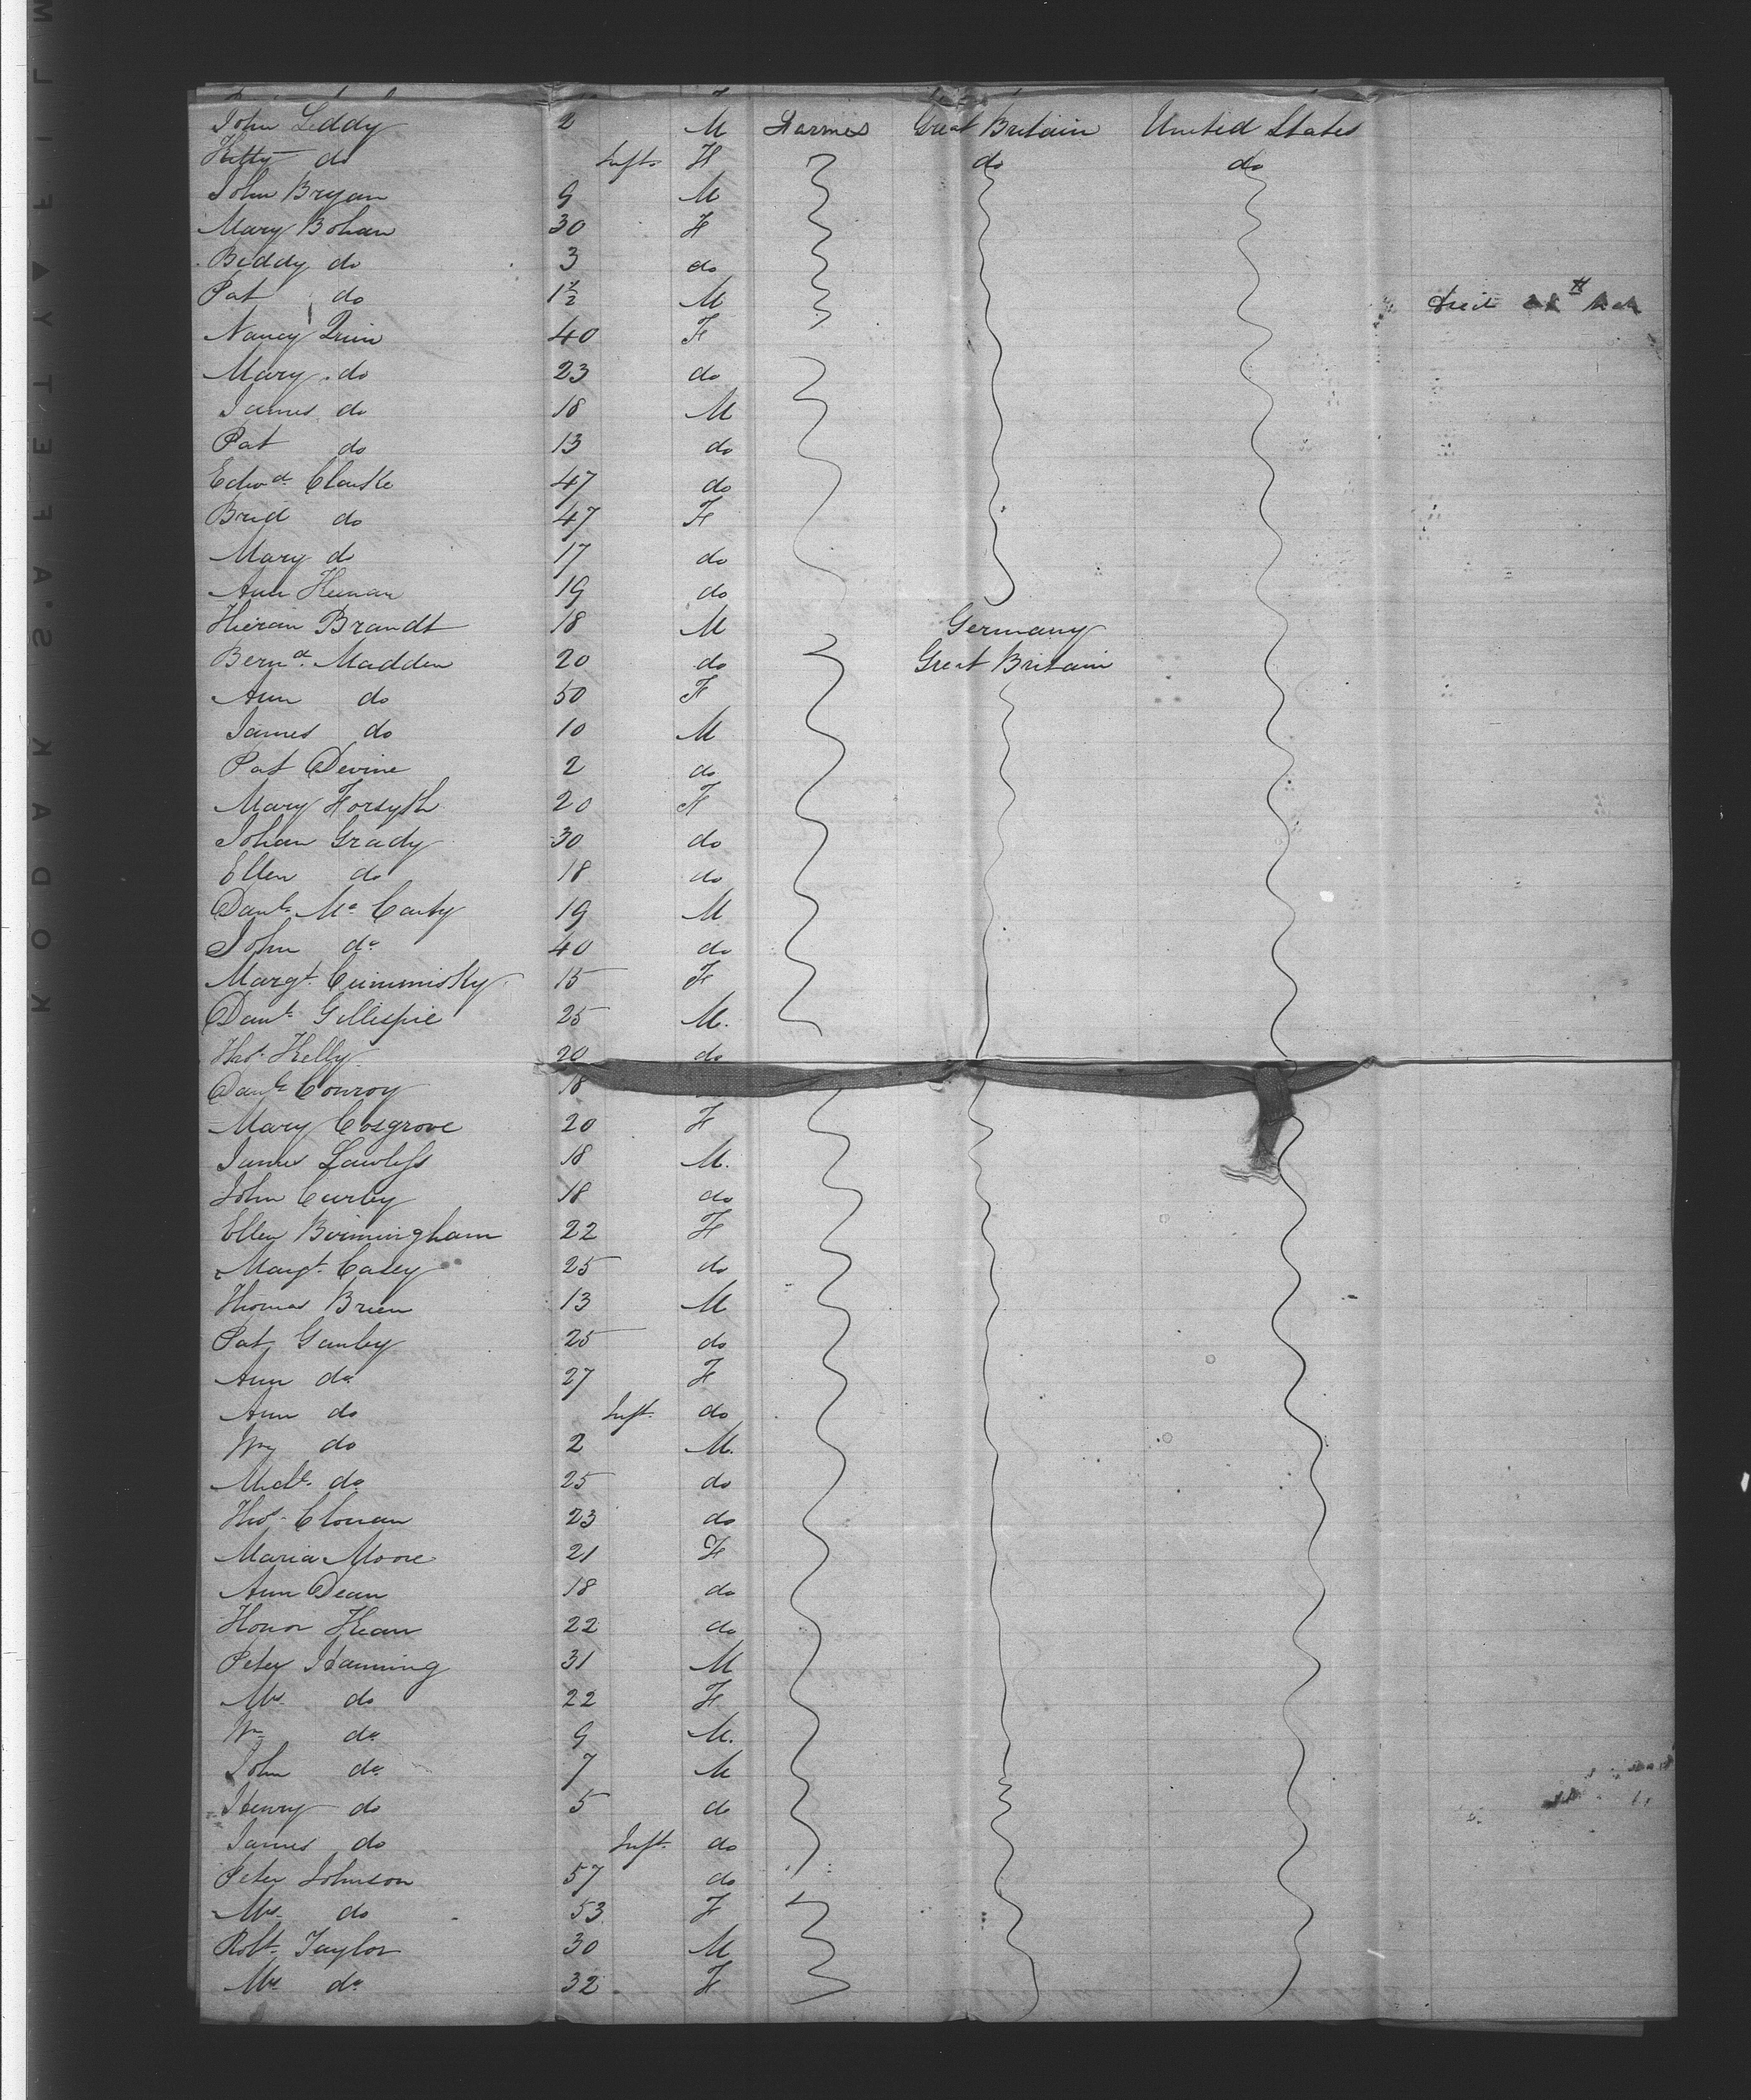 John Leddy 2 M Farmers Great Britain United States
Kitty do Inft. F do do
John Bryan 9 M
Mary Bohan 30 F
Biddy do 3 do
Pat do 1½ M Died
Nancy Quin 40 F
Mary do 23 do
James do 18 M
Pat do 13 do
Edwd. Clarke 47 do
Brid do 47 F
Mary do 17 do
Ann Heenan 19 do
Kieran Brandt 18 M Germany
Bernd. Madden 20 do Great Britain
Ann do 50 F
James do 10 M
Pat Devine 2 do
Mary Forsyth 20 F
Johan Grady 30 do
Ellen do 18 do
Danl. Mc Carty 19 M
John do 40 do
Margt. Cummisky 15 F
Danl. Gillespie 25 M.
Thos. Kelly 20 do
Danl. Conroy 18
Mary Cosgrove 20 F
James Lawless 18 M.
John Curley 18 do
Ellen Birmingham 22 F
Margt. Casey 25 do
Thomas Brien 13 M
Pat Ganley 25 do
Ann do 27 F
Ann do Inft. do
Wm do 2 M.
Michl. do 25 do
Thos. Clonan 23 do
Maria Moore 21 F
Ann Dean 18 do
Honor Kean 22 do
Peter Hanning 31 M
Mrs. do 22 F
Wm do 9 M.
John do 7 M
Henry do 5 do
James do Inft. do
Peter Johnson 57 do
Mrs. do 53 F
Robt. Taylor 30 M
Mrs. do 32 F
KODAK SAFETY FILM